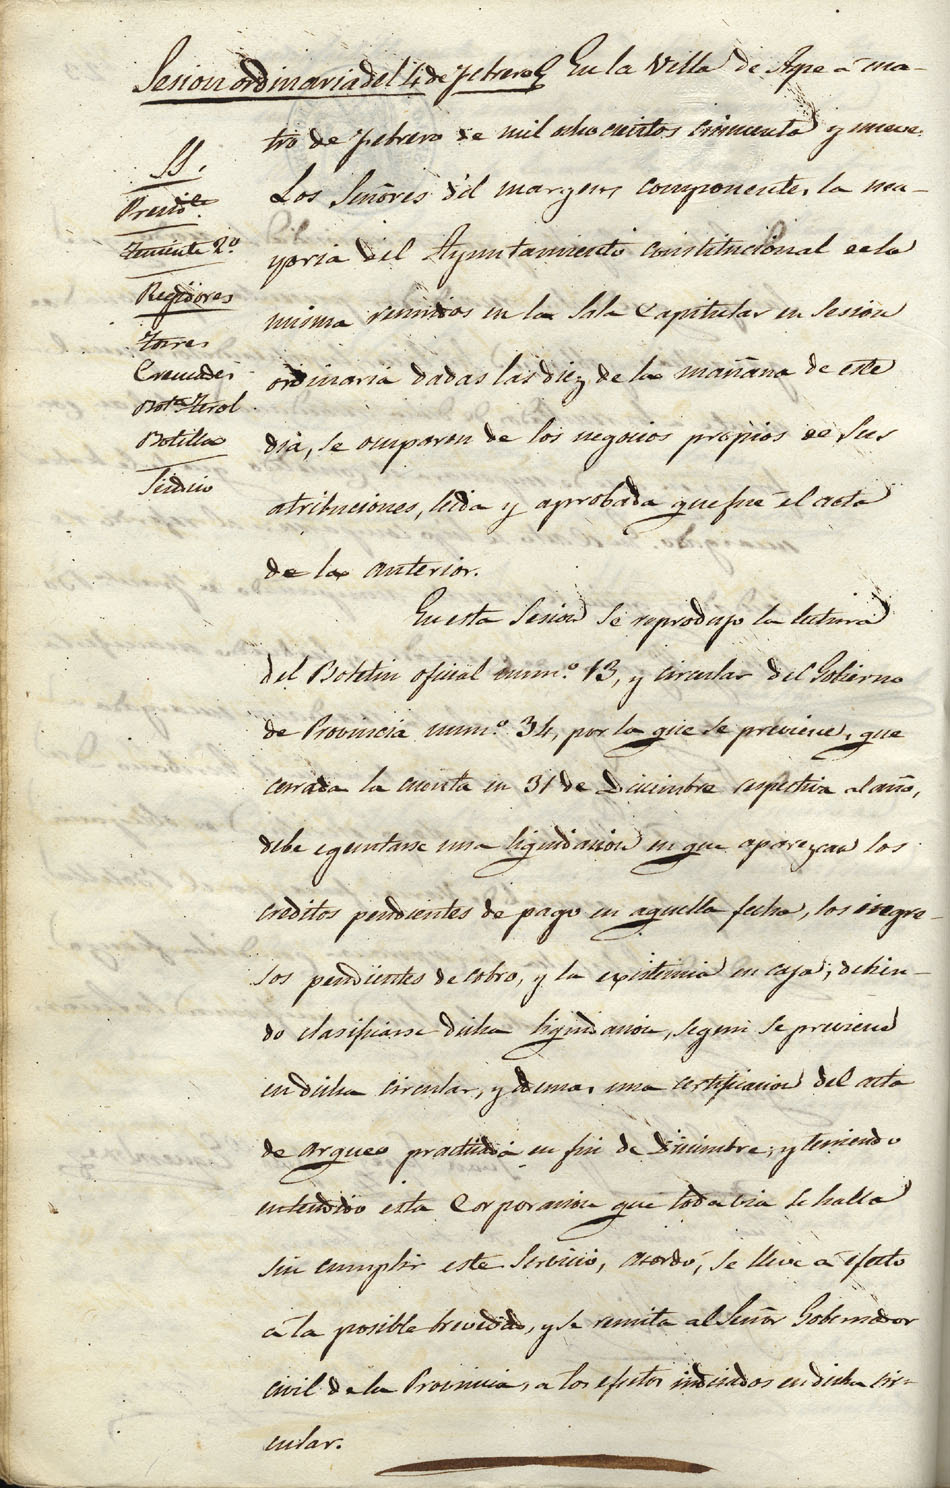 Sesion ordinaria del 4 de febrero. En la Villa de Aspe á cua-
tro de febrero de mil ochocientos cincuenta y nueve.
SS.
Presidte.
Teniente 2º
Regidores
Torres
Cremades
Bota. Terol
Botella
Sindico
Los Señores del margen, componentes la ma-
yoria del Ayuntamiento constitucional de la
misma reunidos en la Sala Capitular en Sesion
ordinaria dadas las diez de la mañana de este
dia, se ocuparon de los negocios propios de sus
atribuciones, leida y aprobada que fué el acta
de la anterior.
En esta Sesion se reprodujo la lectura
del Boletin oficial numº 13, y circular del Gobierno
de Provincia numº 34, por la que se previene, que
cerrada la cuenta en 31 de Diciembre respectiva al año,
debe egecutarse una liquidacion en que aparezcan los
creditos pendientes de pago en aquella fecha, los ingre-
sos pendientes de cobro, y la existencia en caja; debien-
do clasificarse dicha liquidacion, segun se previene
en dicha circular, y demas, una certificacion del acta
de arqueo practicada en fin de Diciembre; y teniendo
entendido esta Corporacion que todavia se halla
sin cumplir este Servicio, acordó, se lleve á efecto
á la posible brevedad, y se remita al Señor Gobernador
civil de la Provincia, a los efectos indicados en dicha cir-
cular.